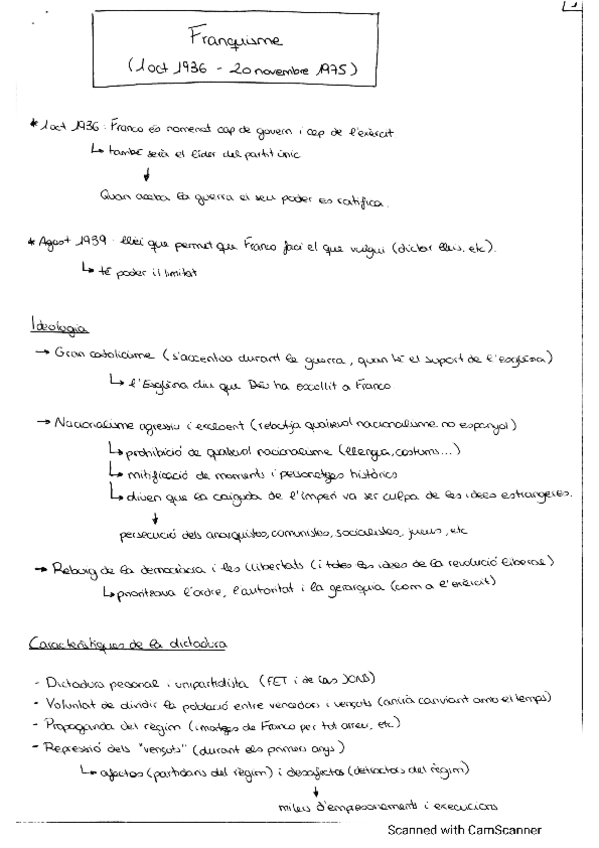 Franquisme
(1 oct 1936 - 20 novembre 1975)
* 1 oct 1936: Franco és nomenat cap de govern i cap de l'exèrcit
↳ també serà el líder del partit únic
↓
Quan acaba la guerra el seu poder es ratifica.
* Agost 1939: llei que permet que Franco faci el que vulgui (dictar lleis, etc).
↳ té poder il·limitat
Ideologia
→ Gran catolicisme (s'accentua durant la guerra, quan té el suport de l'església)
↳ l'Església diu que Déu ha escollit a Franco
→ Nacionalisme agressiu i excloent (rebutja qualsevol nacionalisme no espanyol)
↳ prohibició de qualsevol nacionalisme (llengua, costums...)
↳ mitificació de moments i personatges històrics
↳ diuen que la caiguda de l'imperi va ser culpa de les idees estrangeres.
↓
persecució dels anarquistes, comunistes, socialistes, jueus, etc
→ Rebuig de la democràcia i les llibertats (i totes les idees de la revolució liberal)
↳ prioritzava l'ordre, l'autoritat i la jerarquia (com a l'exèrcit)
Característiques de la dictadura
- Dictadura personal i unipartidista (FET i de las JONS)
- Voluntat de dividir la població entre vencedors i vençuts (anirà canviant amb el temps)
- Propaganda del règim (imatges de Franco per tot arreu, etc)
- Repressió dels "vençuts" (durant els primers anys)
↳ afectes (partidaris del règim) i desafectes (detractors del règim)
↓
milers d'empresonaments i execucions
Scanned with CamScanner